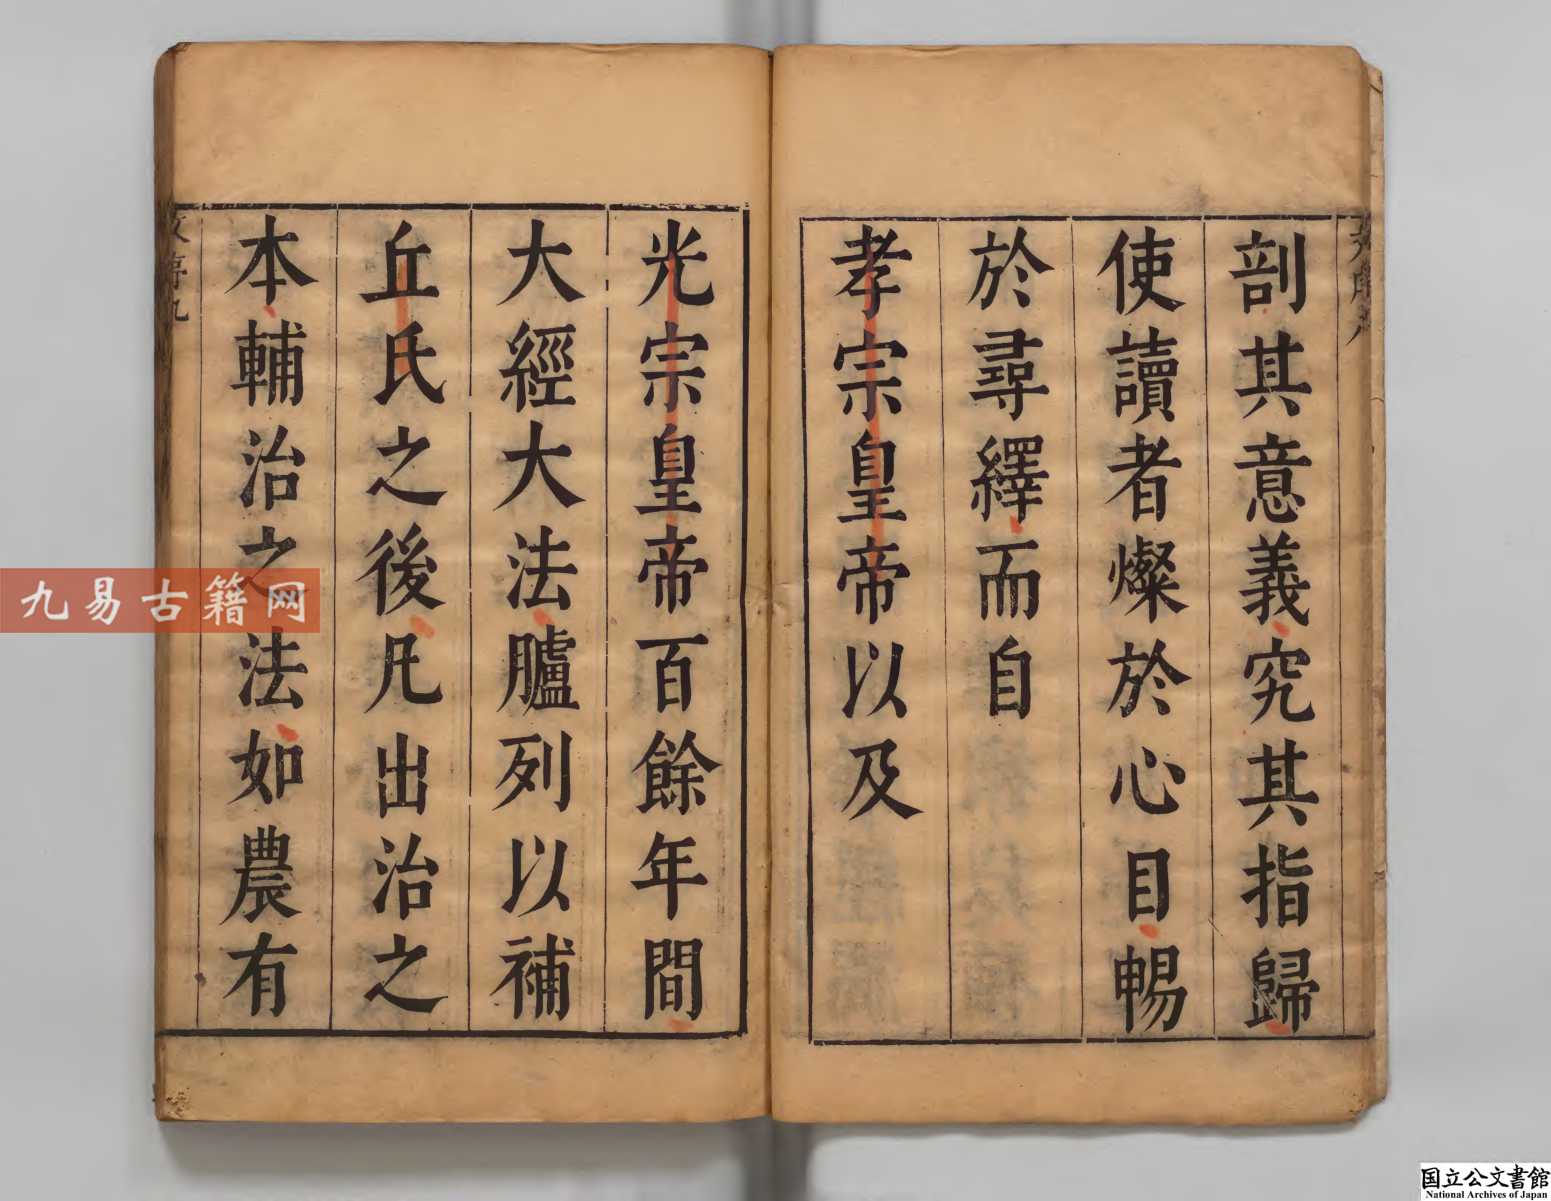 剖其意義究其指歸
使讀者燦於心目暢
於尋繹而自
孝宗皇帝以及
光宗皇帝百餘年間
大經大法臚列以補
丘氏之後凡出治之
本輔治之法如農有
九易古籍网
国立公文書館
National Archives of Japan